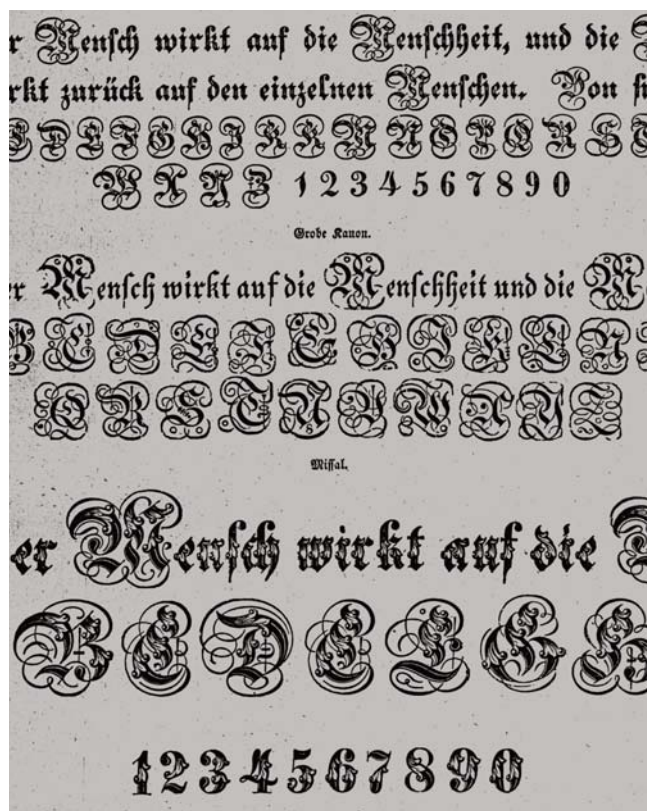 r Menſch wirkt auf die Menſchheit, und die
rkt zurück auf den einzelnen Menſchen. Von
D E F G H I K L M N O P Q R S T
W X Y Z 1 2 3 4 5 6 7 8 9 0
Grobe Kanon.
r Menſch wirkt auf die Menſchheit und die M
B C D E F G H I K L N
O R S T U V W X Y Z
Miſſal.
er Menſch wirkt auf die
B C D E G H
1 2 3 4 5 6 7 8 9 0